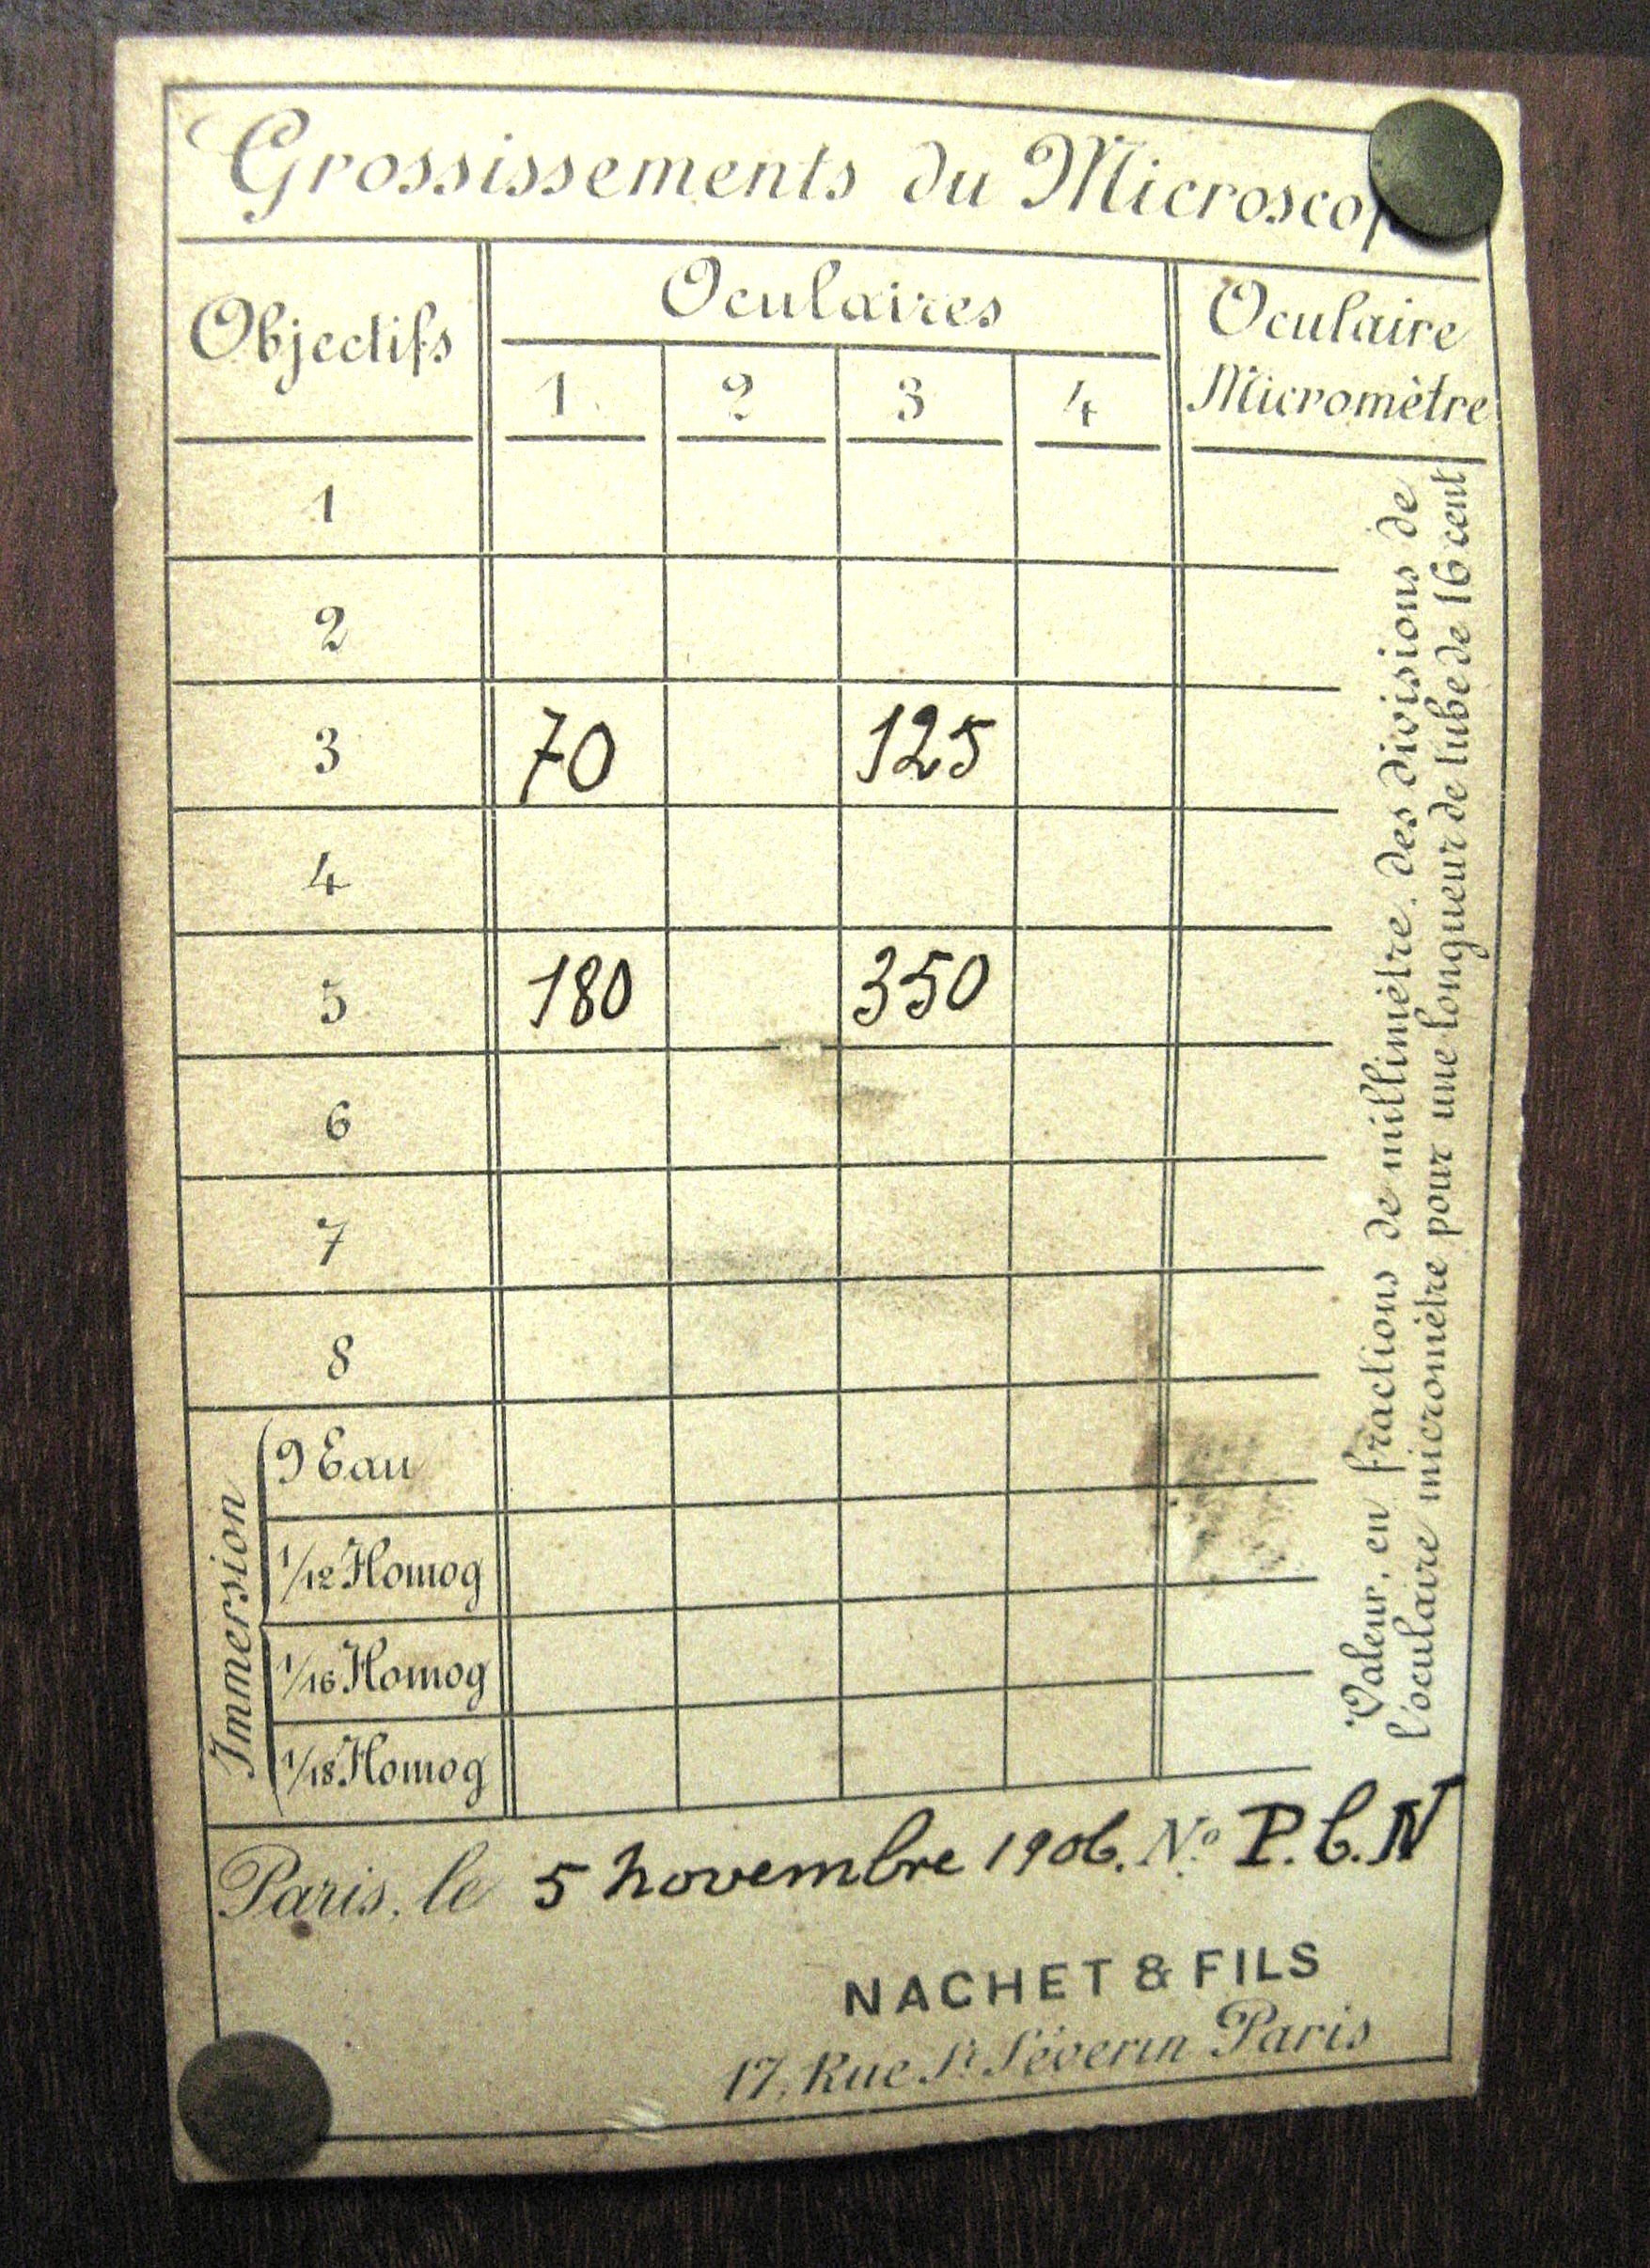 Grossissements du Microscop
Objectifs Oculaires Oculaire Micromètre
1 2 3 4
1
2
3 70 125
4
5 180 350
6
7
8
Immersion
9 Eau
1/12 Homog
1/16 Homog
1/18 Homog
Valeur, en fractions de millimètre, des divisions de
l'oculaire micromètre pour une longueur de tube de 16 cent
Paris, le 5 novembre 1906. Nº P.C.N
NACHET & FILS
17, Rue St Séverin Paris